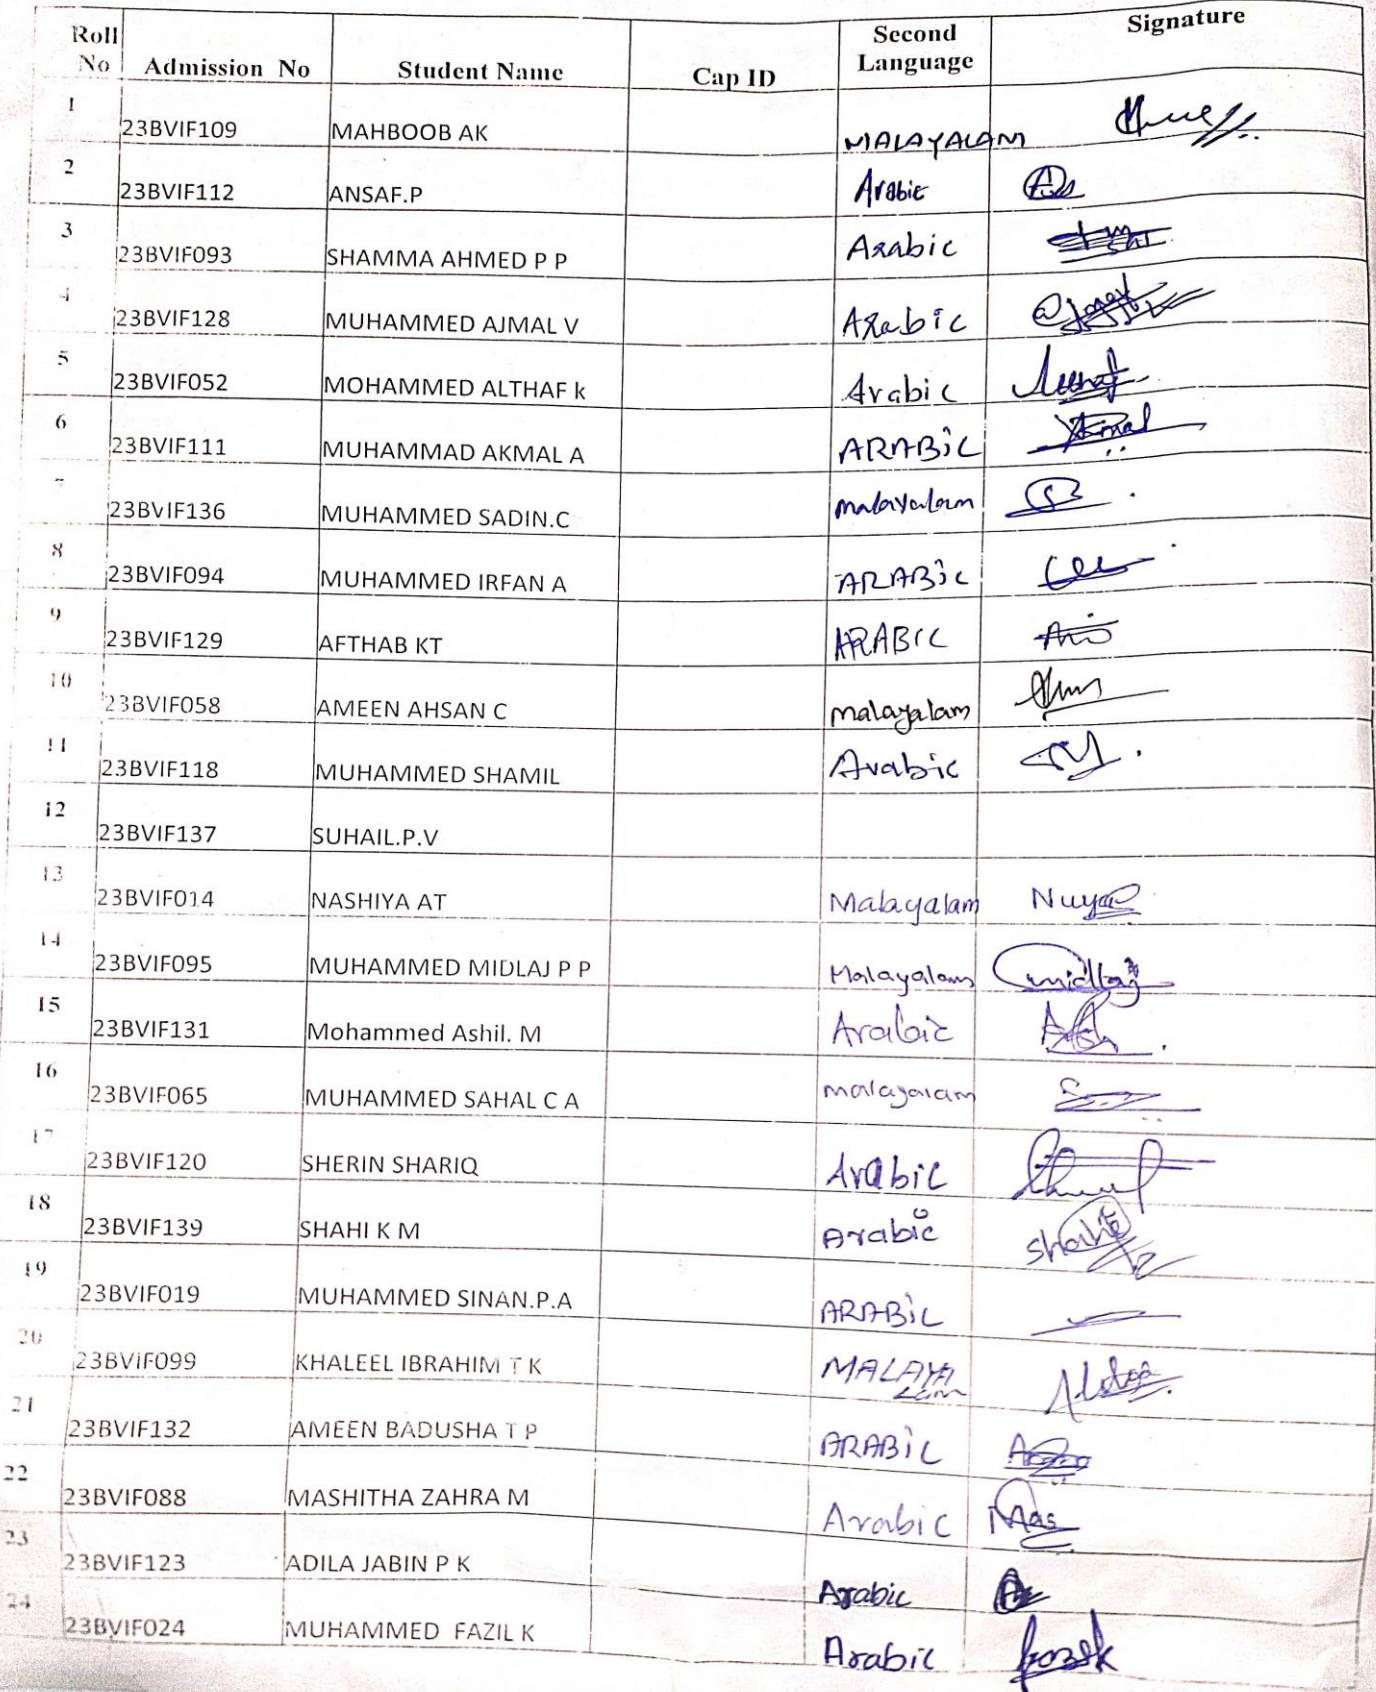 Roll No Admission No Student Name Cap ID Second Language Signature
1 23BVIF109 MAHBOOB AK MALAYALAM
2 23BVIF112 ANSAF.P Arabic
3 23BVIF093 SHAMMA AHMED P P Arabic
4 23BVIF128 MUHAMMED AJMAL V Arabic
5 23BVIF052 MOHAMMED ALTHAF k Arabic
6 23BVIF111 MUHAMMAD AKMAL A ARABiC
7 23BVIF136 MUHAMMED SADIN.C malayalam
8 23BVIF094 MUHAMMED IRFAN A ARABic
9 23BVIF129 AFTHAB KT ARABIC
10 23BVIF058 AMEEN AHSAN C malayalam
11 23BVIF118 MUHAMMED SHAMIL Arabic
12 23BVIF137 SUHAIL.P.V
13 23BVIF014 NASHIYA AT Malayalam
14 23BVIF095 MUHAMMED MIDLAJ P P Malayalam midlaj
15 23BVIF131 Mohammed Ashil. M Arabic
16 23BVIF065 MUHAMMED SAHAL C A malayalam
17 23BVIF120 SHERIN SHARIQ Arabic
18 23BVIF139 SHAHI K M Arabic
19 23BVIF019 MUHAMMED SINAN.P.A ARABiC
20 23BVIF099 KHALEEL IBRAHIM T K MALAYA
Lam
21 23BVIF132 AMEEN BADUSHA T P ARABiC
22 23BVIF088 MASHITHA ZAHRA M Arabic
23 23BVIF123 ADILA JABIN P K Arabic
24 23BVIF024 MUHAMMED FAZIL K Arabic